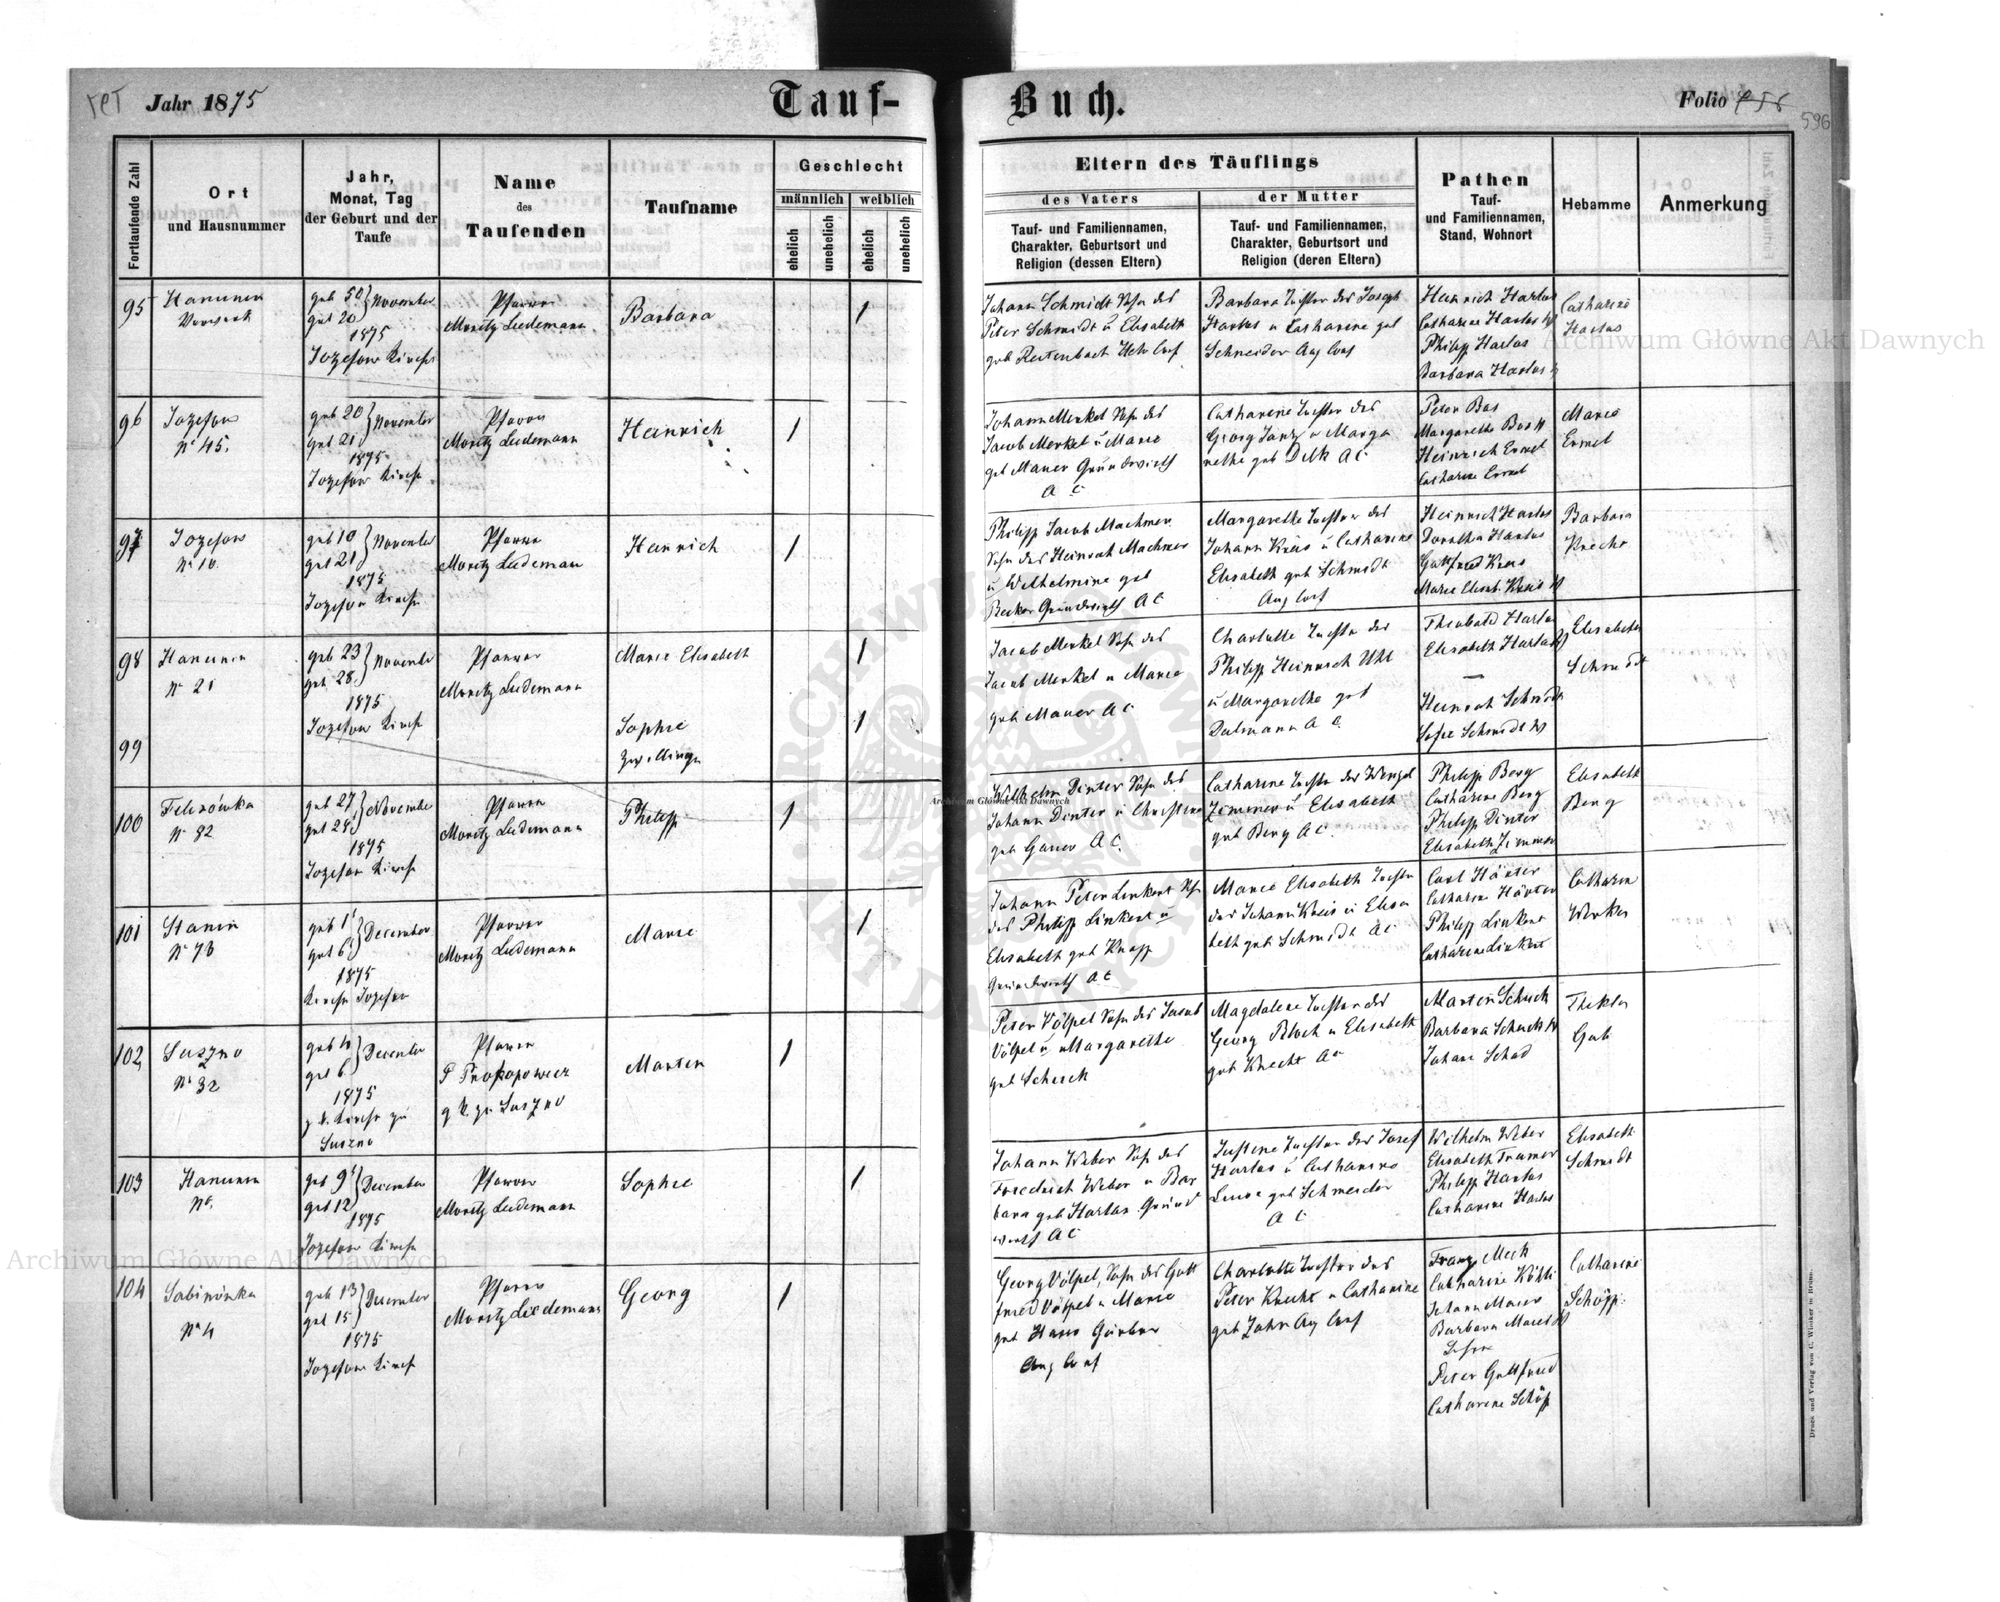 Jahr 1875
Tauf-
Buch.
Folio
596
Fortlaufende Zahl
Ort
und Hausnummer
Jahr,
Monat, Tag
der Geburt und der
Taufe
Name
des
Taufenden
Taufname
Geschlecht
männlich
weiblich
ehelich
unehelich
ehelich
unehelich
Eltern des Täuflings
des Vaters
Tauf- und Familiennamen,
Charakter, Geburtsort und
Religion (dessen Eltern)
der Mutter
Tauf- und Familiennamen,
Charakter, Geburtsort und
Religion (deren Eltern)
Pathen
Tauf-
und Familiennamen,
Stand, Wohnort
Hebamme
Anmerkung
95
Hanunin
Vorwerk
November
1875
Jozefow Kirche
Pfarrer
Moritz Ludemann
Barbara
1
Johann Schmidt Sohn des
Peter Schmidt u Elisabeth
geb
Barbara Tochter des Joseph
Harlos u Catharine geb
Schneider Aug Conf
Heinrich Harlos
Catharine Harlos
Philipp Harlos
Barbara Harlos
Catharine
Harlos
96
Jozefow
Nº 45.
geb 20
get 21
November
1875
Jozefow Kirche
Pfarrer
Moritz Ludemann
Heinrich
1
Johann Merkel Sohn des
Jacob Merkel u Marie
geb Mauer Grundwirth
A C
Catharine Tochter des
Georg u Marga
rethe geb A C
Peter Bas
Margarethe Bas
Heinrich Ermel
Catharine Ermel
Marie
Ermel
97
Jozefow
Nº 10
geb 10
get 21
November
1875
Jozefow Kirche
Pfarrer
Moritz Ludemann
Heinrich
1
Philipp Jacob Machmer
Sohn des Heinrich Machmer
u Wilhelmine geb
Becker Grundwirth A C
Margarethe Tochter des
Johann Kreis u Catharine
Elisabeth geb Schmidt
Aug Conf
Heinrich Harlos
Dorothea Harlos
Gottfried Kreis
Marie Elisab. Kreis
Barbara
Knecht
98
Hanunin
Nº 21
geb 23
get 28
November
1875
Jozefow Kirche
Pfarrer
Moritz Ludemann
Marie Elisabeth
1
Jacob Merkel Sohn des
Jacob Merkel u Marie
geb Mauer A C
Charlotte Tochter des
Philipp Heinrich Uhl
u Margarethe geb
Dalmann A C
Theobald Harlos
Elisabeth Harlos
Elisabeth
Schmidt
99
Sophie
Zwillinge
1
Heinrich Schmidt
Sofie Schmidt
100
Felizówka
Nº 82
geb 27
get 28
November
1875
Jozefow Kirche
Pfarrer
Moritz Ludemann
Philipp
1
Wilhelm Dinter Sohn des
Johann Dinter u Christine
geb Gauer A C.
Catharine Tochter des Wenzel
Zimmer u Elisabeth
geb Berg A C.
Philipp Berg
Catharine Berg
Philipp Dinter
Elisabeth Zimmer
Elisabeth
Berg
101
Stanin
Nº 76
geb 1
get 6
December
1875
Kirche Jozefow
Pfarrer
Moritz Ludemann
Marie
1
Johann Peter Linkert Sohn
des Philipp Linkert u
Elisabeth geb Knapp
Grundwirth A C
Marie Elisabeth Tochter
des Johann Kreis u Elisa
beth geb Schmidt A C
Carl Härter
Catharine Härter
Philipp Linkert
Catharine Linkert
Catharin
102
Suszno
Nº 32
geb 4
get 6
December
1875
g. k. Kirche zu
Suszno
Pfarrer
P Prokopowicz
g k zu Suszno
Martin
1
Peter Völpel Sohn des Jacob
Völpel u Margarethe
geb Scherck
Magdalene Tochter des
Georg Bloch u Elisabeth
geb Knecht A C
Martin Schuck
Barbara Schuck
Johann Schad
Thekla
103
Hanunin
Nº
geb 9
get 12
December
1875
Jozefow Kirche
Pfarrer
Moritz Ludemann
Sophie
1
Johann Weber Sohn des
Friedrich Weber u Bar
bara geb Harlos Grund
wirth A C
Justine Tochter des Josef
Harlos u Catharine
geb Schneider
A C
Wilhelm Weber
Elisabeth
Philipp Harlos
Catharine Harlos
Elisabeth
Schmidt
104
Sabinówka
Nº 4
geb 13
get 15
December
1875
Jozefow Kirche
Pfarrer
Moritz Ludemann
Georg
1
Georg Völpel, Sohn des Gott
fried Völpel u Marie
geb
Aug Conf
Charlotte Tochter des
Peter Knecht u Catharine
geb Aug Conf
Franz Mech
Catharine
Johann
Barbara
Peter Gottfried
Catharine Schöpp
Catharine
Schöpp.
Druck und Verlag von C. Winiker in Brünn.
Archiwum Główne Akt Dawnych
Archiwum Główne Akt Dawnych
Archiwum Główne Akt Dawnych
ARCHIWUM GŁÓWNE AKT DAWNYCH